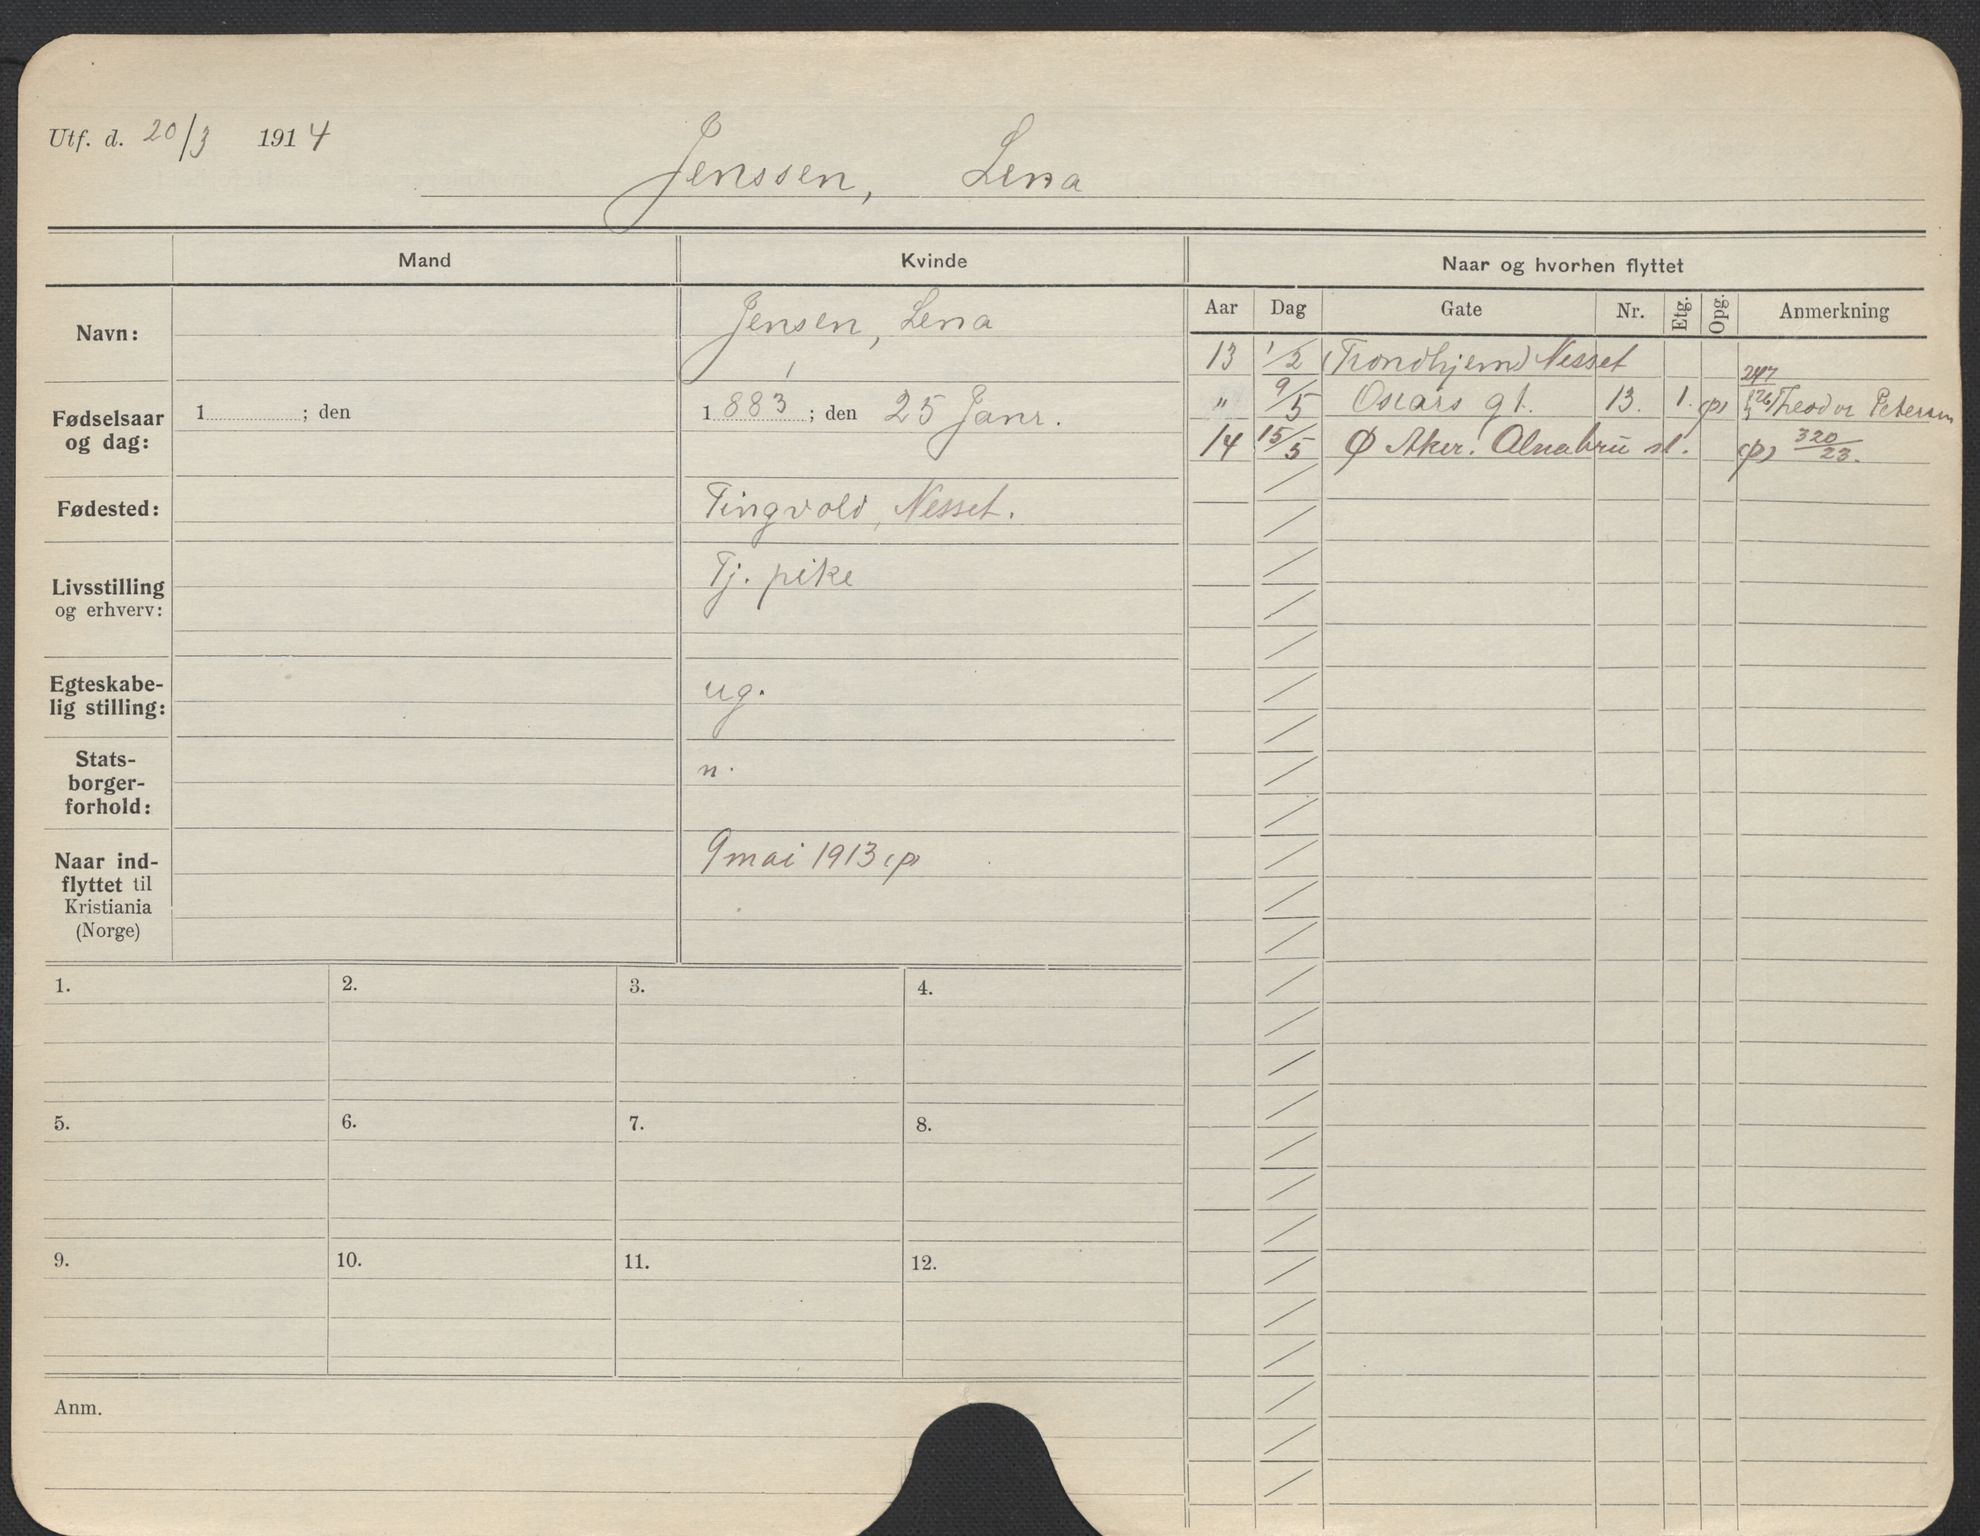 Utf. d. 20/3 1914
Jenssen, Lena
Mand
Kvinde
Naar og hvorhen flyttet
Navn:
Jensen, Lena
Fødselsaar og dag:
1 ; den
1883 ; den 25 Janr.
Fødested:
Tingvold, Nesset.
Livsstilling og erhverv:
Tj. pike
Egteskabe-
lig stilling:
ug.
Stats-
borger-
forhold:
n.
Naar ind-
flyttet til
Kristiania
(Norge)
9 mai 1913 (p)
Aar Dag Gate Nr. Etg. Opg. Anmerkning
13 1/2 (Trondhjem) Nesset
" 9/5 Oscars gt. 13. 1. (p) 247 Theodor Petersen
14 15/5 Ø Aker. Alnabru st. (p) 320/23.
1. 2. 3. 4.
5. 6. 7. 8.
9. 10. 11. 12.
Anm.